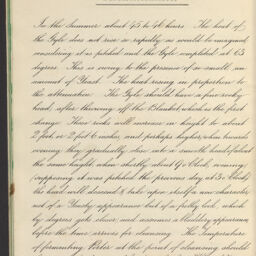 In the Summer about 45 to 48 hours. The heat of
the Gyle does not rise so rapidly as would be imagined
considering it is pitched and the Gyle completed at 63
degrees. This is owing to the presence of so small an
amount of Yeast. The heat rising in proportion to
the attenuation. The Gyle should have a fine rocky
head, after throwing off the Blanket, which is the first
change. These rocks will increase in height to about
2 feet or 2 feet 6 inches, and perhaps higher, when towards
evening they gradually else into a smooth head of about
the same height, when shortly about 9 o'Clock, evening,
supposing it was pitched the previous day at 3 o'Clock
the head will descend & take upon itself a new character
not of a Yeasty appearance but of a frothy head, which
by degrees gets closer and assumes a bladdery appearance
before the time arrives for cleansing. The Temperature
of fermenting Porter at the point of cleansing should